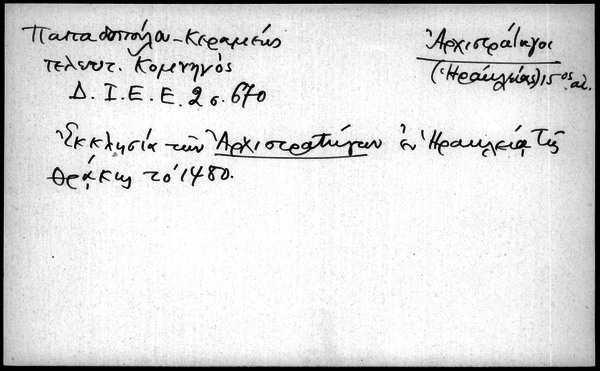 Παπαδοπούλου-Κεραμεύς
τελευτ. Κομνηνός
Δ. Ι. Ε. Ε. 2 σ. 670
Ἀρχιστράτηγοι
(Ἡράκλειας) 15ος αἰ.
Ἐκκλησία τῶν Ἀρχιστρατήγων ἐν Ἡρακλείᾳ τῆς
Θρᾴκης τὸ 1480.